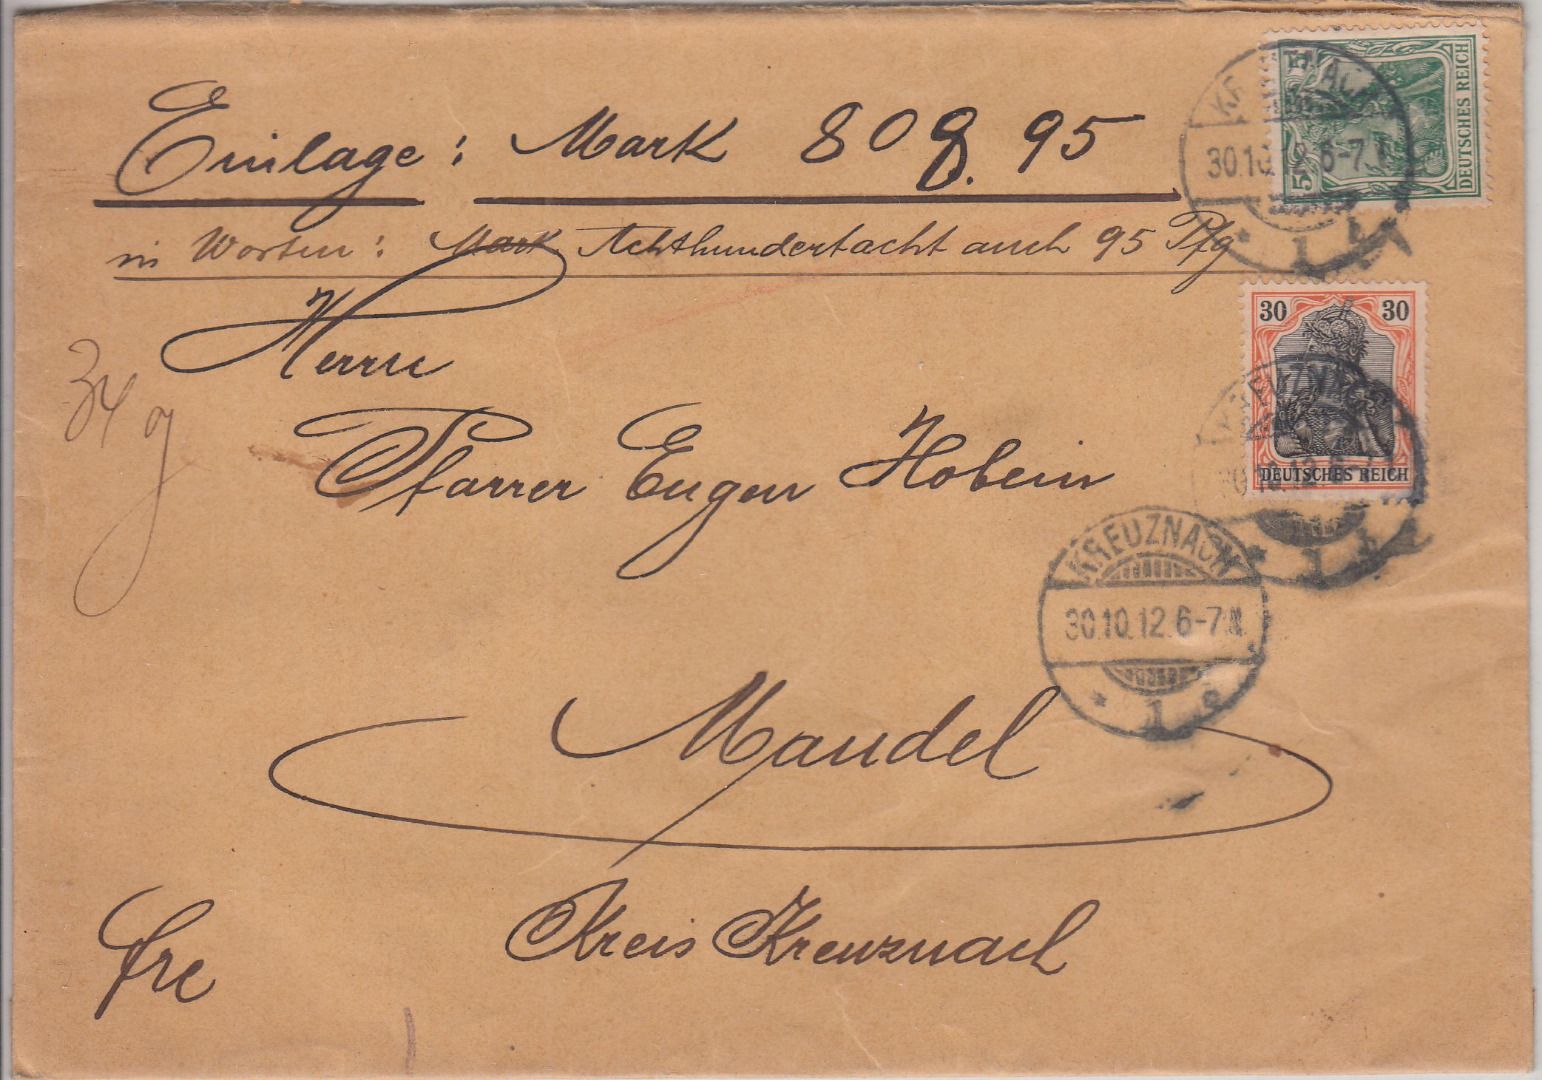 Einlage: Mark 808.95
in Worten: Mark Achthundertacht auch 95 Pfg
Herrn
Pfarrer Eugen Hobein
Mandel
Kreis Kreuznach
fre
34 g
5
DEUTSCHES REICH
KREUZNACH
30.10.12.6-7N
* 1 t
30 30
DEUTSCHES REICH
KREUZNACH
30.10
* 1 t
KREUZNACH
30.10.12.6-7N
* 1 e